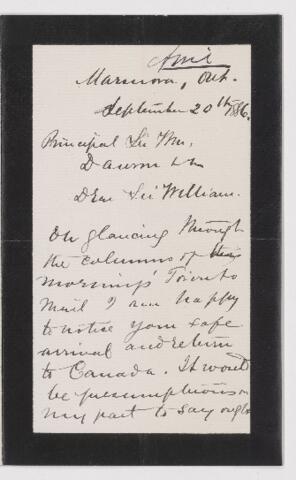 Marmora, Ont.
September 20th /86.
Principal Sir Wm.
Dawson
Dear Sir William.
On glancing through
the columns of this
morning's Toronto
Mail I am happy
to notice your safe
arrival and return
to Canada. It would
be presumptuous on
my part to say ought